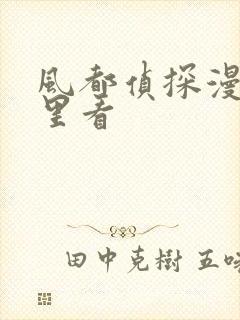 風都偵探漫
里看
田中克樹 五